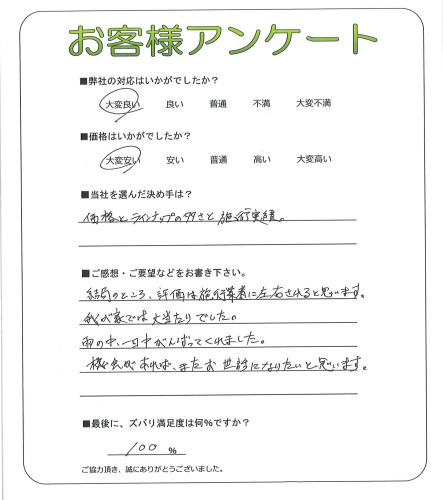 お客様アンケート
■弊社の対応はいかがでしたか?
大変良い 良い 普通 不満 大変不満
■価格はいかがでしたか?
大変安い 安い 普通 高い 大変高い
■当社を選んだ決め手は?
価格とラインナップの多さと施行実績。
■ご感想・ご要望などをお書き下さい。
結局のところ、評価は施行業者に左右されると思います。
我が家では大当たりでした。
雨の中、一日中がんばってくれました。
機会があれば、またお世話になりたいと思います。
■最後に、ズバリ満足度は何%ですか?
100 %
ご協力頂き、誠にありがとうございました。